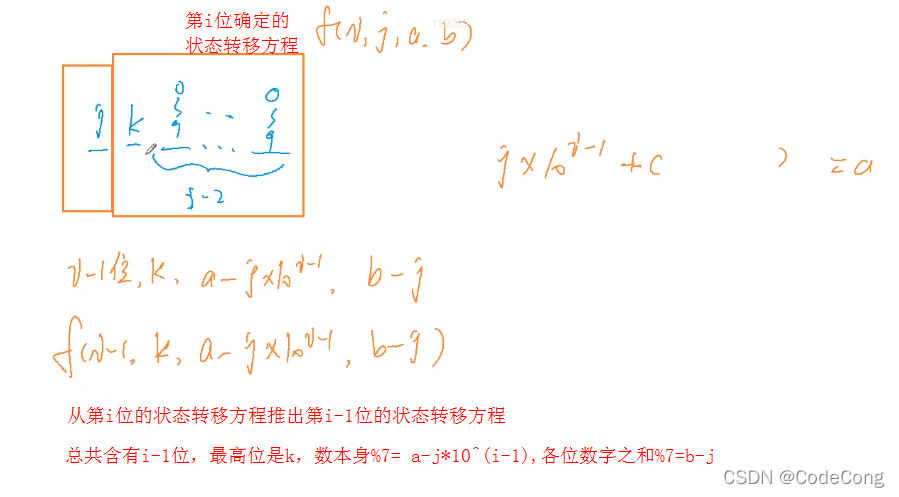 第i位确定的
状态转移方程
f(i, j, a, b)
j k 0 ~ 9 ... 0 ~ 9
i-2
j×10^{i-1} + ( ) = a
i-1位, k, a-j×10^{i-1}, b-j
f(i-1, k, a-j×10^{i-1}, b-j)
从第i位的状态转移方程推出第i-1位的状态转移方程
总共含有i-1位，最高位是k，数本身%7= a-j*10^(i-1),各位数字之和%7=b-j
CSDN @CodeCong